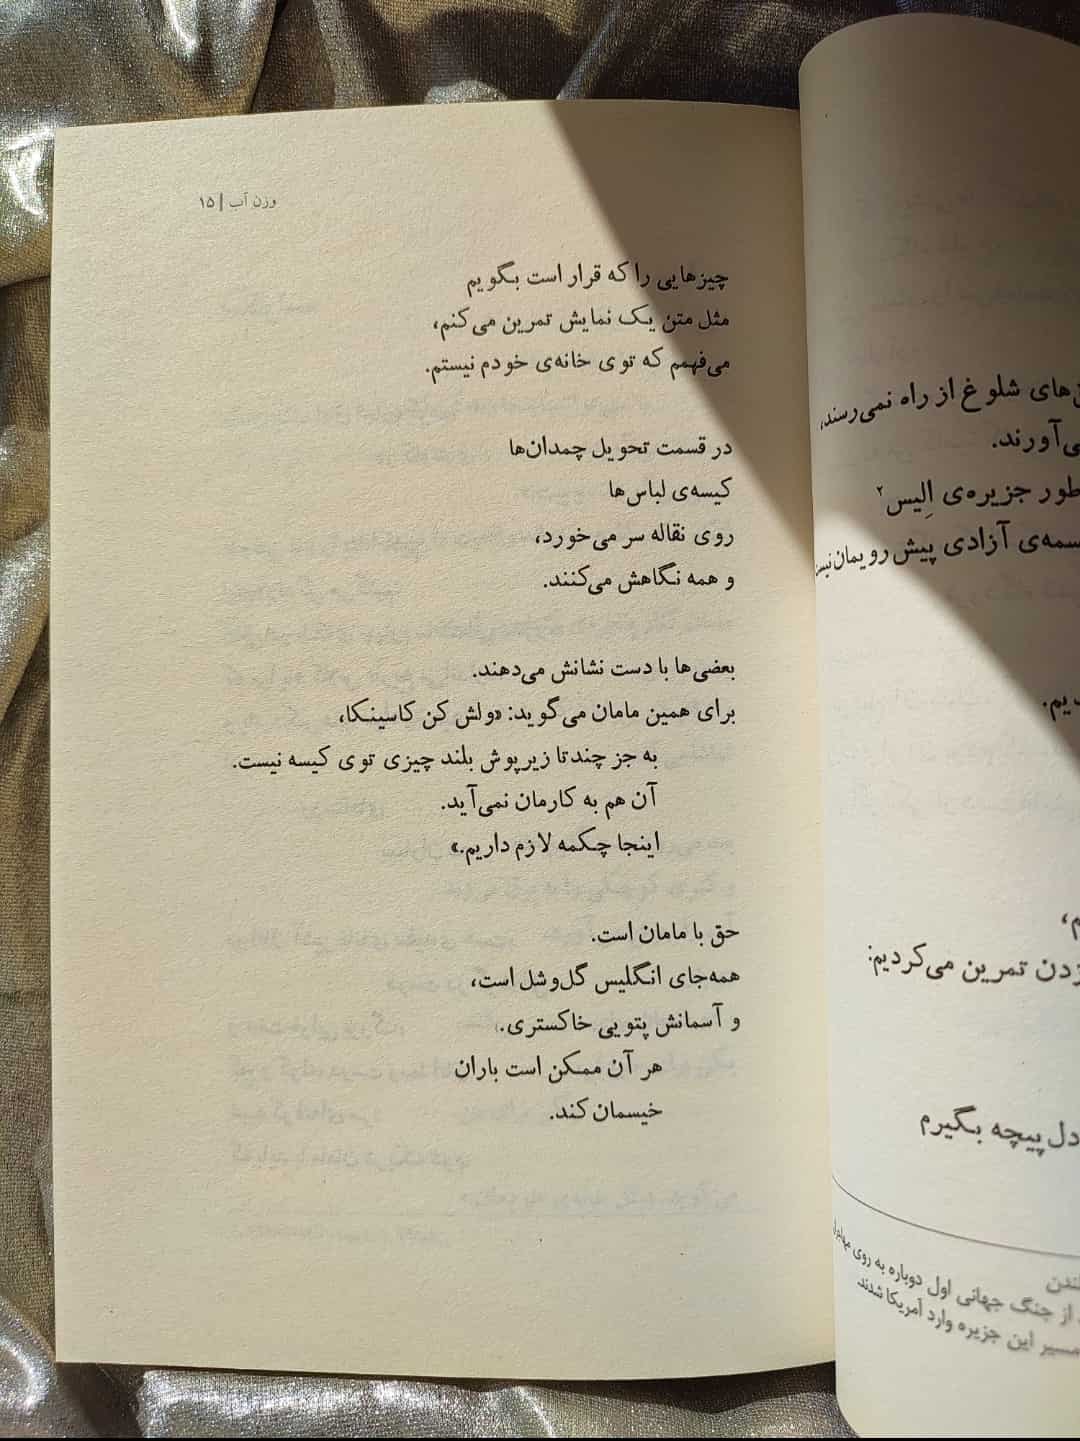 وزن آب | ۱۵
چیزهایی را که قرار است بگویم
مثل متن یک نمایش تمرین می‌کنم،
می‌فهمم که توی خانه‌ی خودم نیستم.
در قسمت تحویل چمدان‌ها
کیسه‌ی لباس‌ها
روی نقاله سر می‌خورد،
و همه نگاهش می‌کنند.
بعضی‌ها با دست نشانش می‌دهند.
برای همین مامان می‌گوید: «ولش کن کاسینکا،
به جز چندتا زیرپوش بلند چیزی توی کیسه نیست.
آن هم به کارمان نمی‌آید.
اینجا چکمه لازم داریم.»
حق با مامان است.
همه‌جای انگلیس گل‌وشل است،
و آسمانش پتویی خاکستری.
هر آن ممکن است باران
خیسمان کند.
های شلوغ از راه نمی‌رسند،
آورند.
طور جزیره‌ی اِلیس۲
سمه‌ی آزادی پیش رویمان
یم.
م،
زدن تمرین می‌کردیم:
دل‌پیچه بگیرم
ندن
از جنگ جهانی اول دوباره به روی
مسیر این جزیره وارد آمریکا شدند.